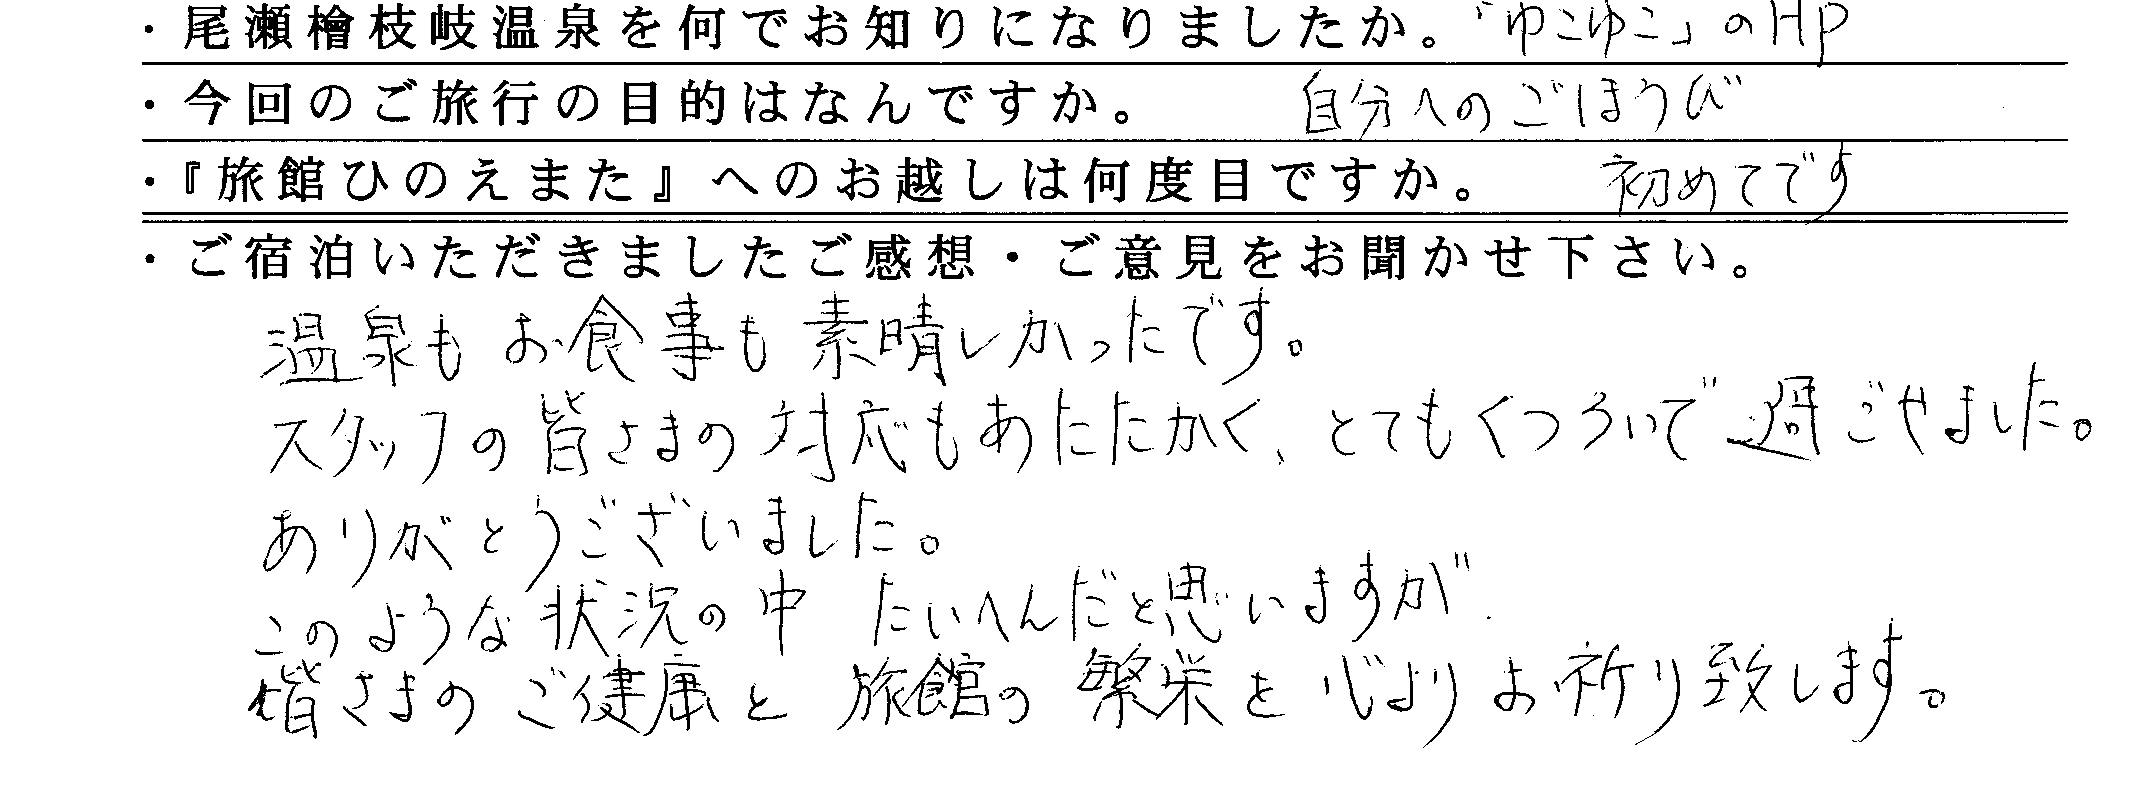 ・尾瀬檜枝岐温泉を何でお知りになりましたか。「ゆこゆこ」のHP
・今回のご旅行の目的はなんですか。 自分へのごほうび
・『旅館ひのえまた』へのお越しは何度目ですか。 初めてです
・ご宿泊いただきましたご感想・ご意見をお聞かせ下さい。
温泉もお食事も素晴しかったです。
スタッフの皆さまの対応もあたたかく、とてもくつろいで過ごせました。
ありがとうございました。
このような状況の中 たいへんだと思いますが、
皆さまのご健康と旅館の繁栄を心よりお祈り致します。